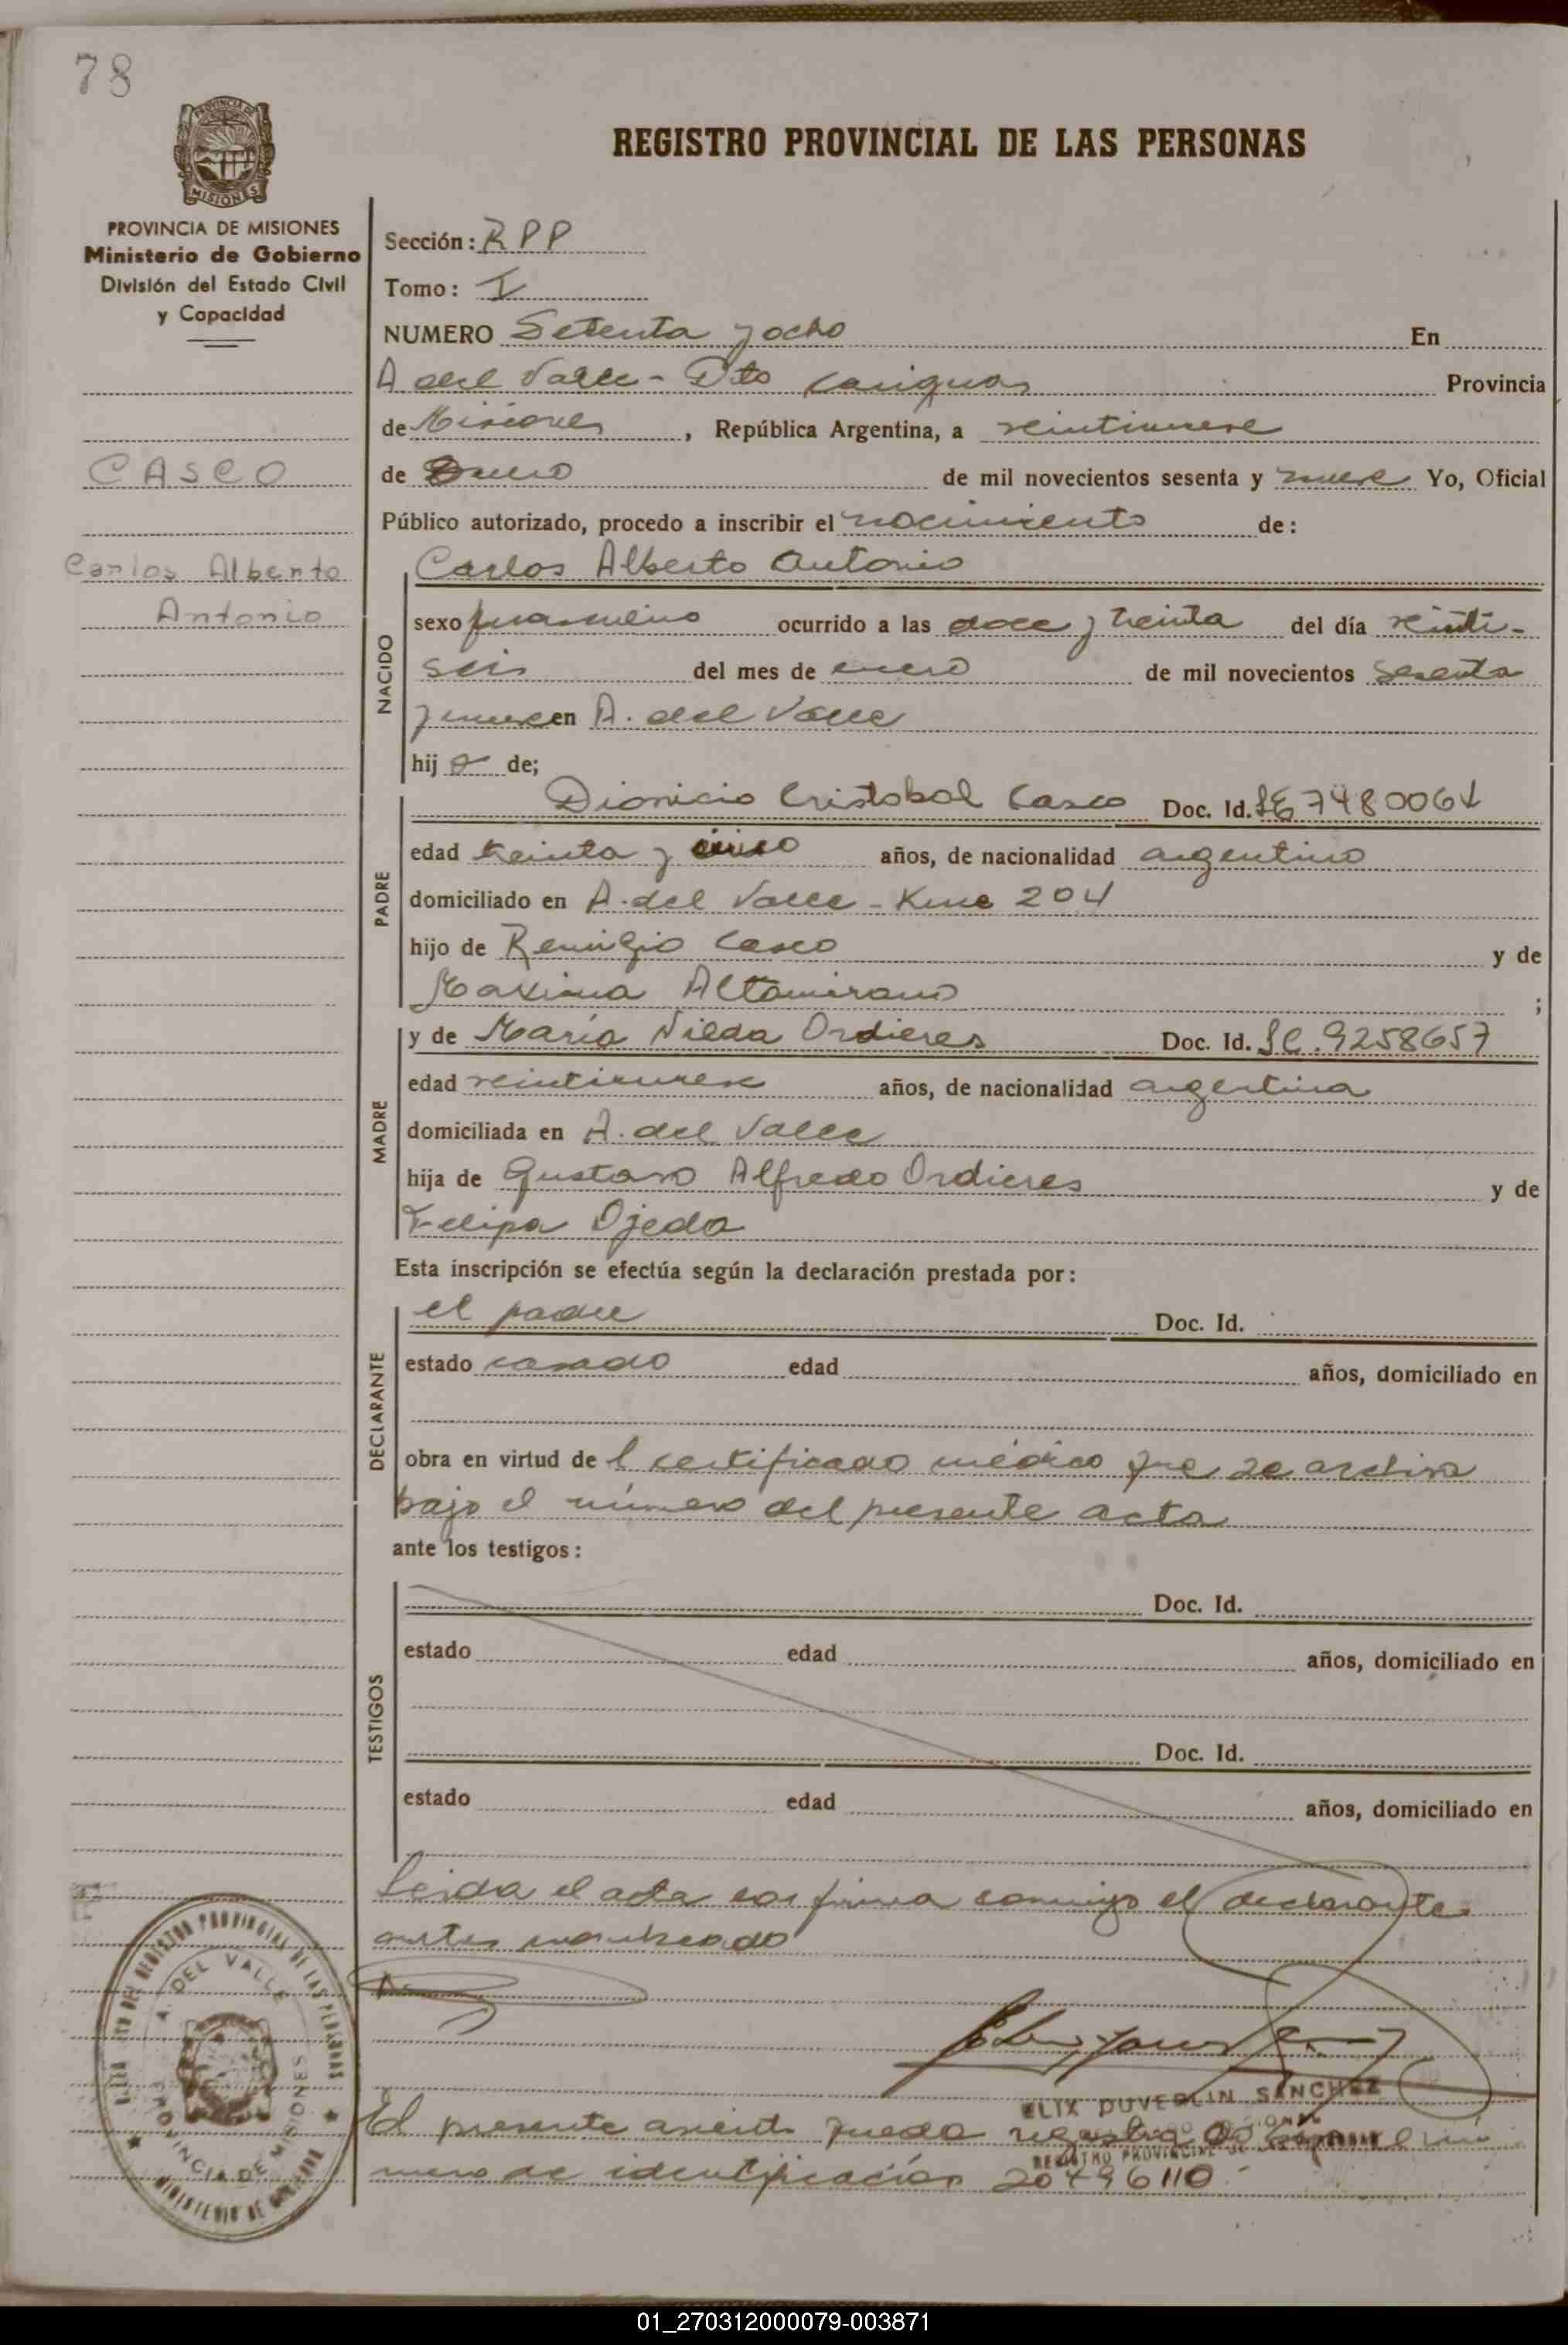 78
PROVINCIA DE MISIONES
PROVINCIA DE MISIONES
Ministerio de Gobierno
División del Estado Civil
y Capacidad
CASCO
Carlos Alberto
Antonio
REGISTRO PROVINCIAL DE LAS PERSONAS
Sección: RPP
Tomo: I
NUMERO Setenta y ocho En
A del Valle - Dto Cainguas Provincia
de Misiones, República Argentina, a veintinueve
de Enero de mil novecientos sesenta y nueve Yo, Oficial
Público autorizado, procedo a inscribir el nacimiento de:
NACIDO
Carlos Alberto Antonio
sexo masculino ocurrido a las doce y treinta del día veinti-
seis del mes de enero de mil novecientos sesenta
y nueve en A. del Valle
hijo de;
PADRE
Dionicio Cristobal Casco Doc. Id. LE 7480061
edad treinta y cinco años, de nacionalidad argentino
domiciliado en A. del Valle - Kme 204
hijo de Remigio Casco y de
Maxima Altamirano ;
MADRE
y de María Nilda Ordieres Doc. Id. LC. 9258657
edad veintinueve años, de nacionalidad argentina
domiciliada en A. del Valle
hija de Gustavo Alfredo Ordieres y de
Felipa Ojeda
Esta inscripción se efectúa según la declaración prestada por:
DECLARANTE
el padre Doc. Id.
estado casado edad años, domiciliado en
obra en virtud de l certificado médico que se archiva
bajo el número del presente acta
ante los testigos:
TESTIGOS
Doc. Id.
estado edad años, domiciliado en
Doc. Id.
estado edad años, domiciliado en
Leida el acta la firma conmigo el declarante
antes nombrado
A. DEL VALLE
PROVINCIA DE MISIONES
MINISTERIO DE GOBIERNO
ELIX DUVERLIN SANCHEZ
REGISTRO PROVINCIAL DE
El presente asiento queda registrado bajo el nú
mero de identificación 20496110
01_270312000079-003871